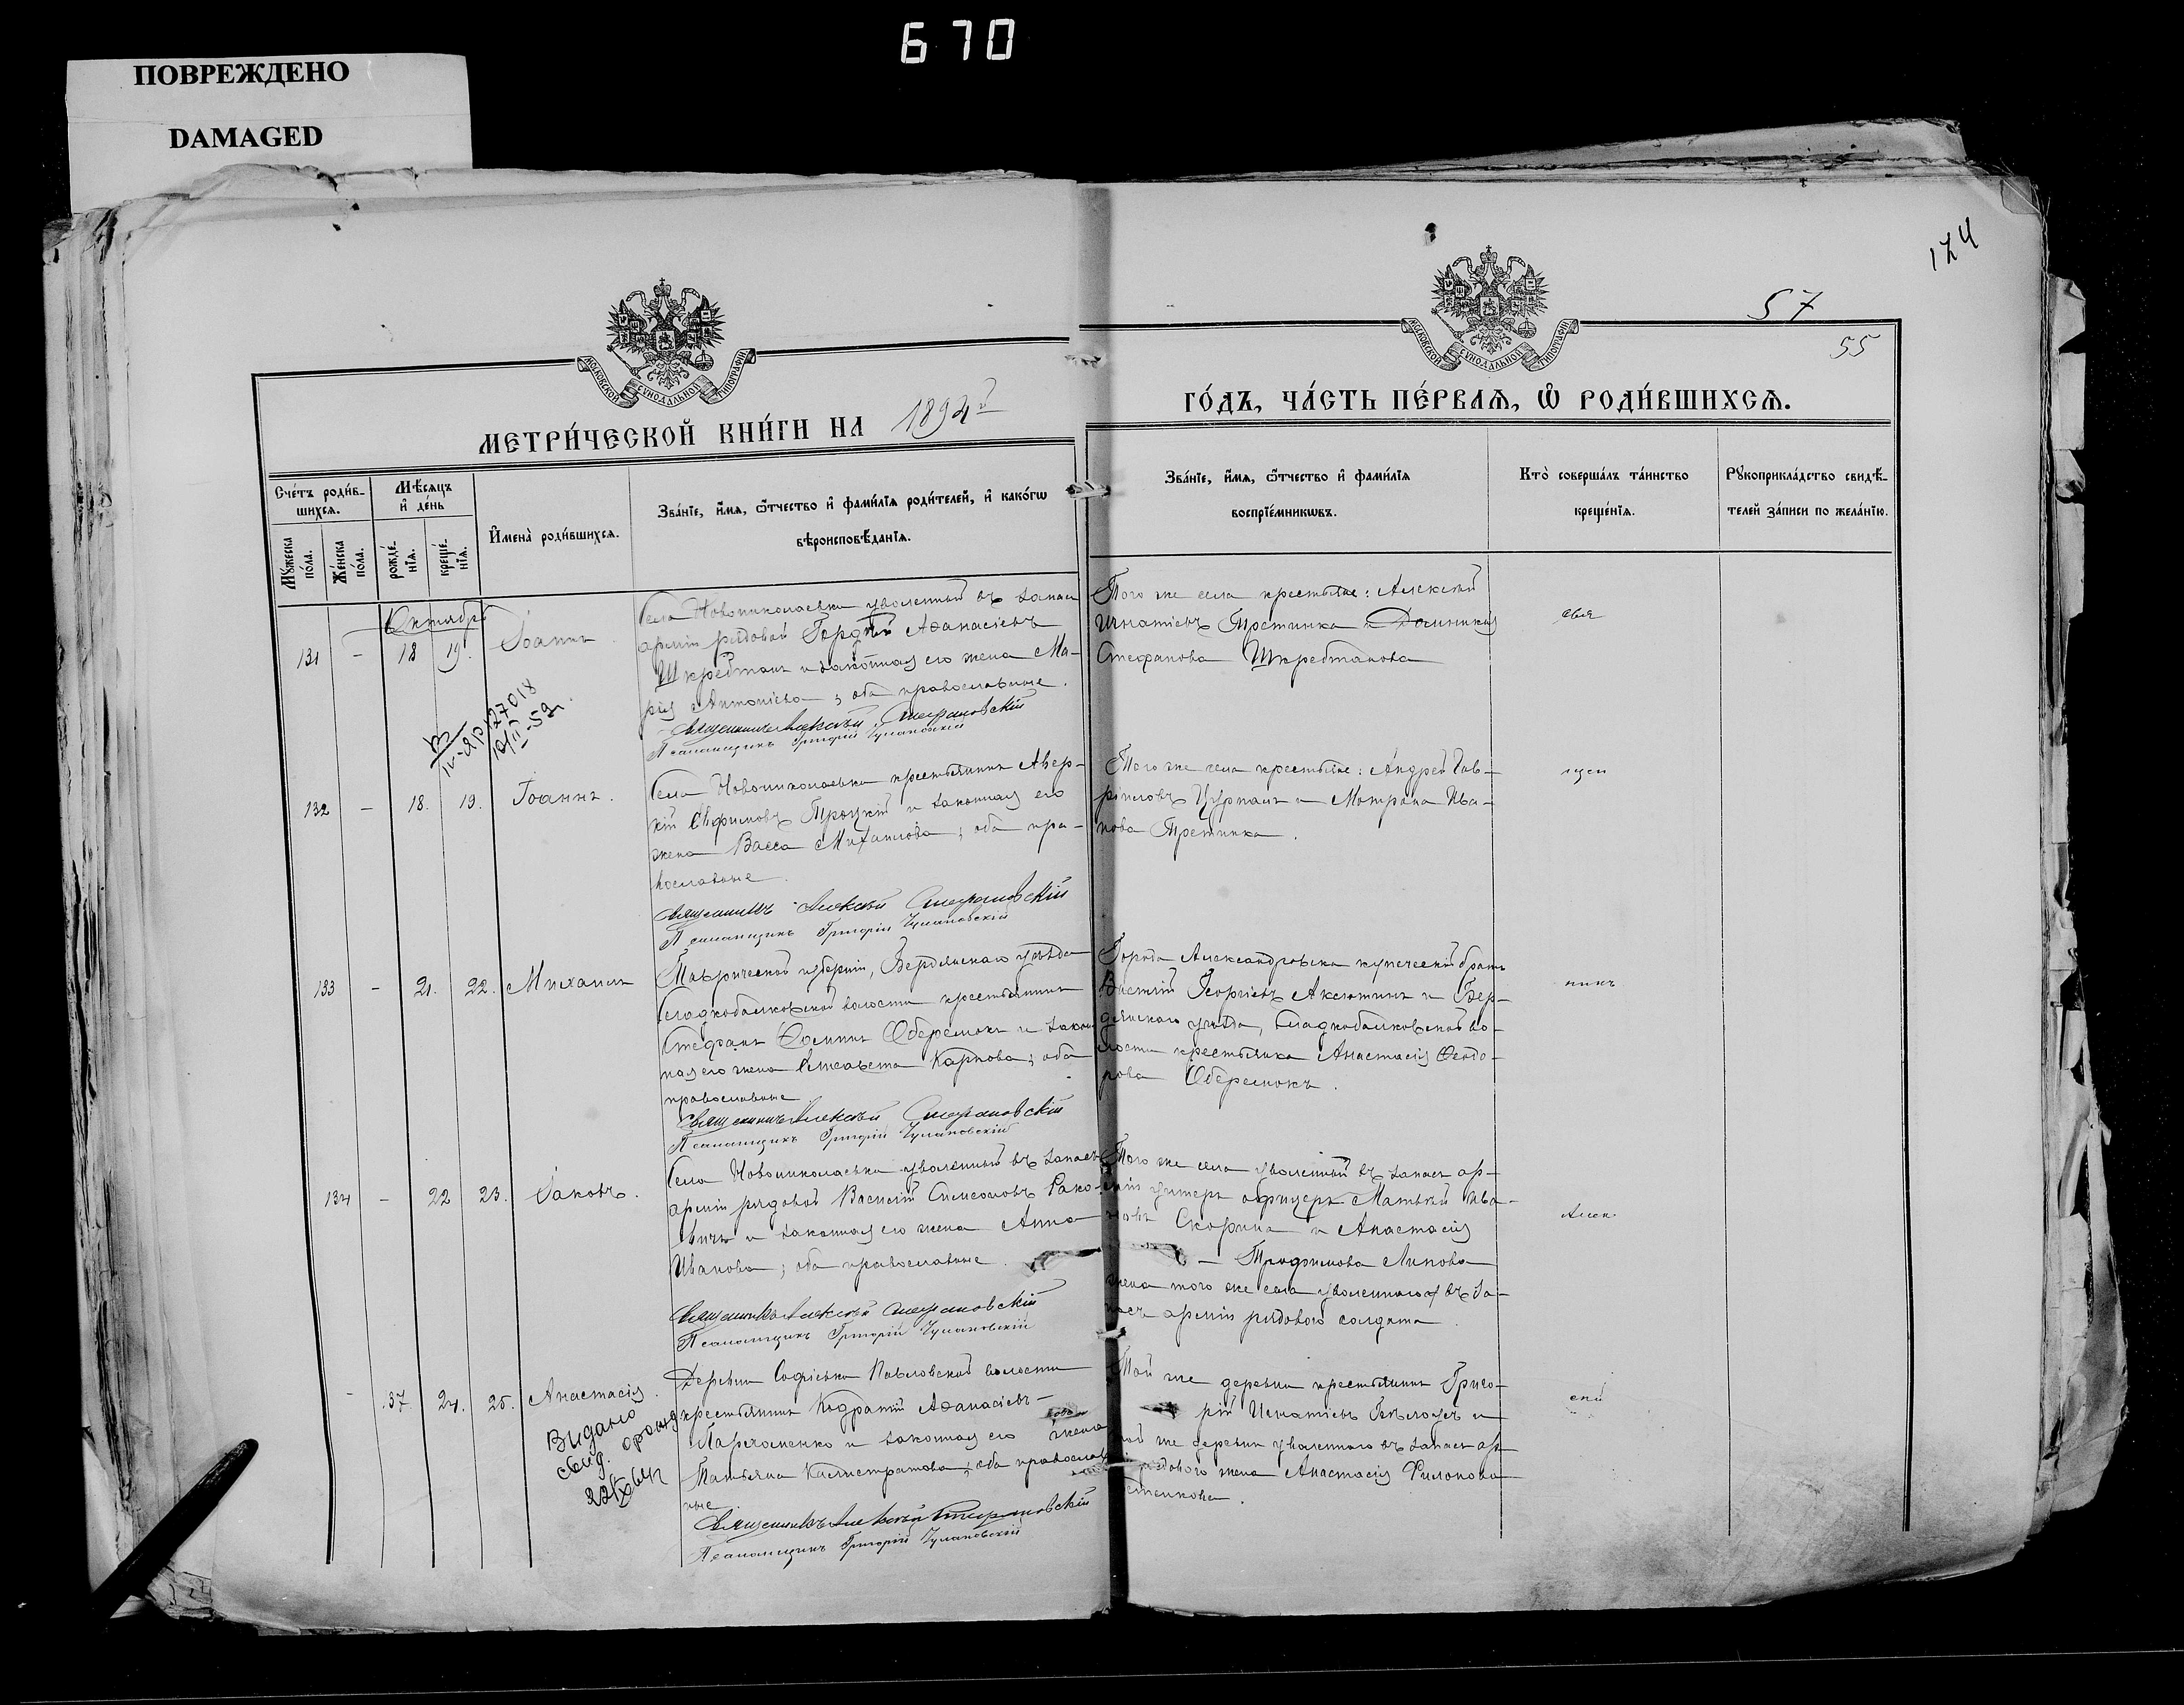 670
ПОВРЕЖДЕНО
DAMAGED
124
57
55
МОСКОВСКОЙ СУНОДАЛЬНОЙ ТИПОГРАФІИ
МОСКОВСКОЙ СУНОДАЛЬНОЙ ТИПОГРАФІИ
МЕТРИ́ЧЕСКОЙ КНИ́ГИ НА 1894й
ГО́ДЪ, ЧА́СТЬ ПЕ́РВАЯ, Ѡ҆ РОДИ́ВШИХСЯ.
Сче́тъ роди́в-
шихся.
Мѣ́сяцъ
и҆ де́нь
Му́жеска
по́ла.
Же́нска
по́ла.
рожде́-
нїя.
креще́-
нїя.
И҆мена̀ роди́вшихся.
Зва́нїе, и҆́мя, ѻ҆́тчество и҆ фами́лїя роди́телей, и҆ како́гѡ
вѣроисповѣ́данїя.
Зва́нїе, и҆́мя, ѻ҆́тчество и҆ фами́лїя
воспрїе́мникѡвъ.
Кто̀ соверша́лъ та́инство
креще́нїя.
Рꙋкоприкла́дство свидѣ́-
телей за́писи по жела́нїю.
Октябрь
131 - 18 19. Іоаннъ
Села Новониколаевка уволенный въ запасъ
арміи рядовой Гордѣй Аѳанасіевъ
Шкребтанъ и законная его жена Ма-
рія Антоніева; оба православные.
Священникъ Алексѣй Стефановскій
Псаломщикъ Григорій Чулановскій
Того же села крестьяне: Алексѣй
Игнатіевъ Третинка и Домникія
Стефанова Шкребтанова
свя
27018
132 - 18. 19. Іоаннъ.
Села Новониколаевка крестьянинъ Авер-
кій Евфимовъ Троцкій и законная его
жена Васса Михаилова; оба пра-
вославные.
Священникъ Алексѣй Стефановскій
Псаломщикъ Григорій Чулановскій
Того же села крестьяне: Андрей Гав-
ріиловъ Цурпалъ и Матрона Ива-
нова Третинка.
щен
133 - 21. 22. Михаилъ
Таврической губерніи, Бердянскаго уѣзда
Сладкобалковской волости крестьянинъ
Стефанъ Ѳоминъ Оберемокъ и закон-
ная его жена Елисавета Карпова; оба
православные.
Священникъ Алексѣй Стефановскій
Псаломщикъ Григорій Чулановскій
Города Александровска купеческій братъ
Василій Георгіевъ Аксютинъ и Бер-
дянскаго уѣзда, Сладкобалковской во-
лости крестьянка Анастасія Ѳеодо-
рова Оберемокъ.
никъ
134 - 22 23. Іаковъ.
Села Новониколаевка уволенный въ запасъ
арміи рядовой Василій Симеоновъ Рако-
вичъ и законная его жена Анна
Иванова; оба православные.
Священникъ Алексѣй Стефановскій
Псаломщикъ Григорій Чулановскій
Того же села уволенный въ запасъ ар-
міи унтеръ офицеръ Матвѣй Ива-
новъ Скорина и Анастасія
— Трофимова Липова
жена того же села уволеннаго въ за-
пасъ арміи рядового солдата
Алек
- 37 24. 25. Анастасія.
Деревни Софіевка Павловской волости
крестьянинъ Кодратій Аѳанасіевъ
Пархоменко и законная его жена
Татьяна Каллистратова; оба православ-
ные.
Священникъ Алексѣй Стефановскій
Псаломщикъ Григорій Чулановскій
Той же деревни крестьянинъ Григо-
рій Игнатіевъ и
той же деревни уволеннаго въ запасъ ар-
рядового жена Анастасія Филонова
сѣй
Видано
свид.